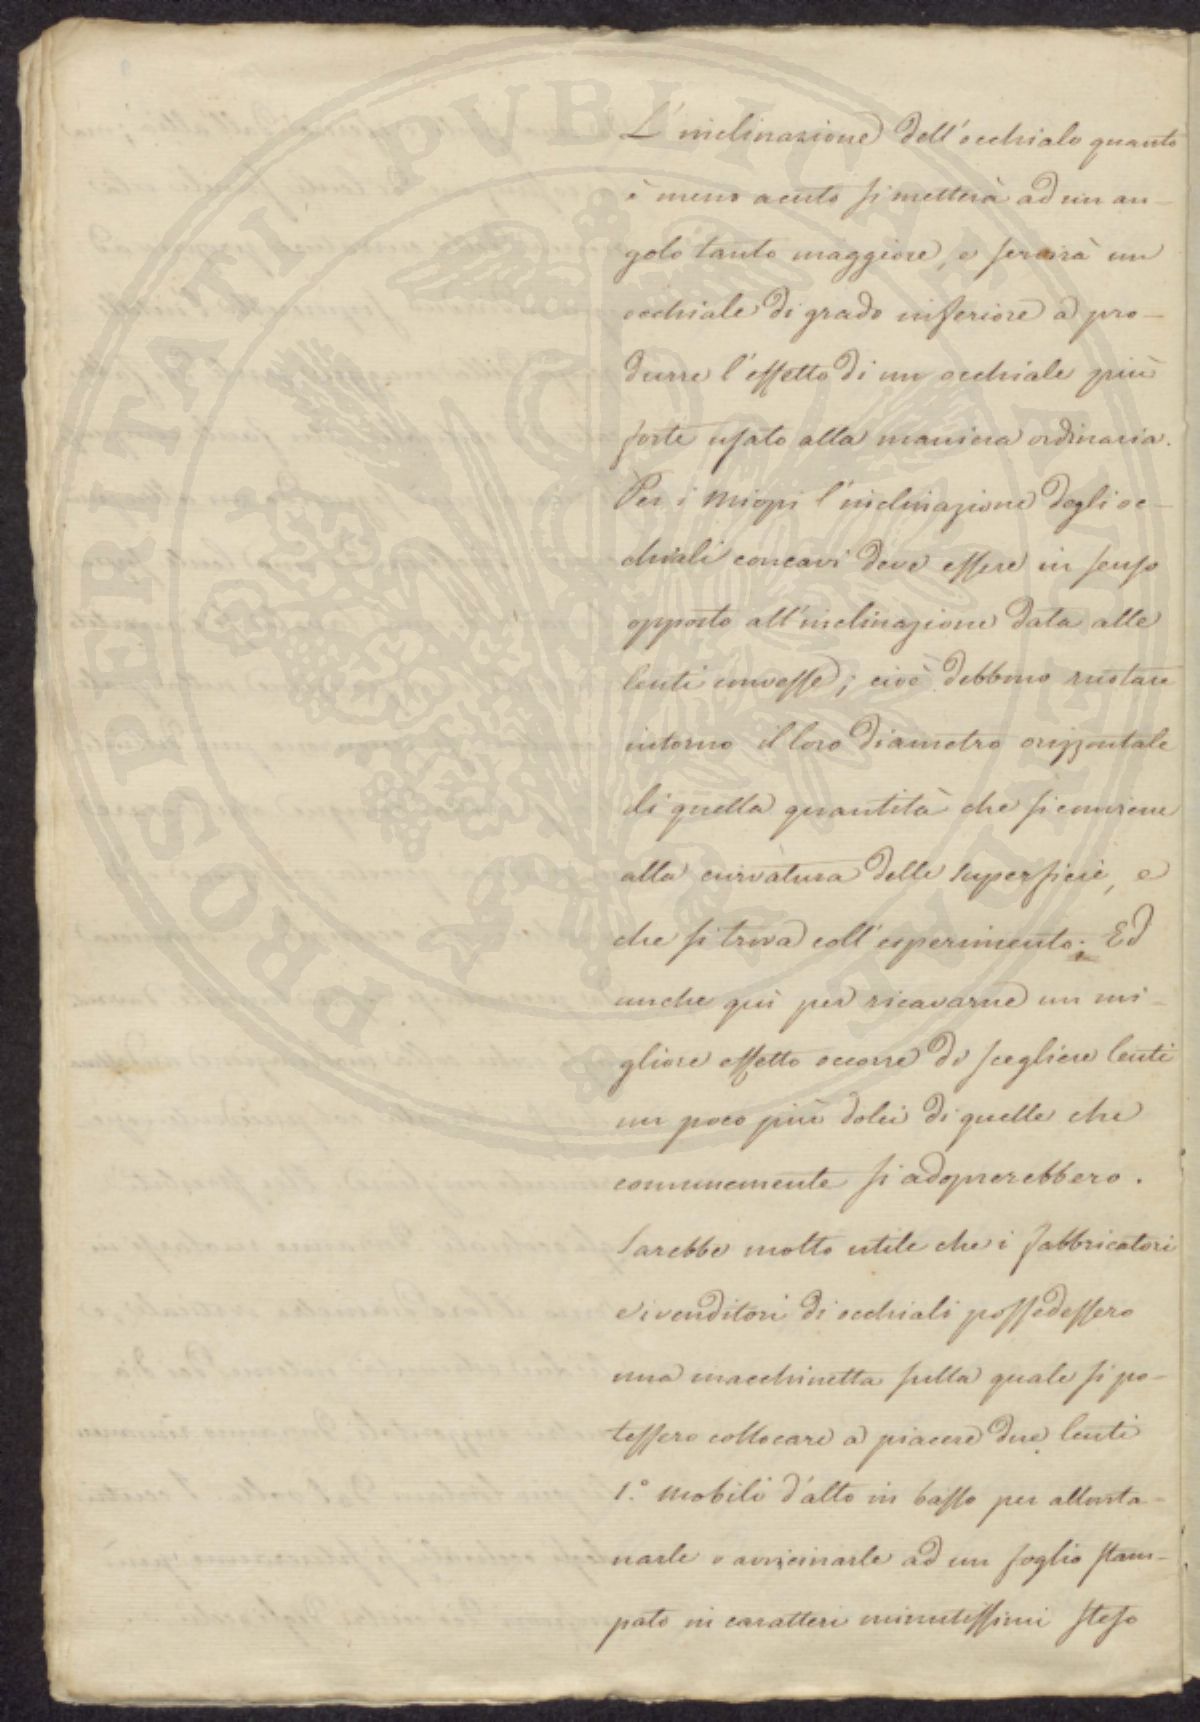 L'inclinazione dell'occhialo quanto
è meno acuto si metterà ad un an-
golo tanto maggiore, e servirà un
occhiale di grado inferiore a pro-
durre l'effetto di un occhiale più
forte usato alla maniera ordinaria.
Per i Miopi l'inclinazione degli oc-
chiali concavi deve essere in senso
opposto all'inclinazione data alle
lenti convesse; cioè debbono ruotare
intorno il loro diametro orizzontale
di quella quantità che si conviene
alla curvatura delle superficie, e
che si trova coll'esperimento. Ed
anche quì per ricavarne un mi-
gliore effetto occorre di scegliere lenti
un poco più dolci di quelle che
comunemente si adoprerebbero.
Sarebbe molto utile che i fabbricatori
e i venditori di occhiali possedessero
una macchinetta sulla quale si po-
tessero collocare a piacere due lenti
1.° Mobili d'alto in basso per allonta-
narle o avvicinarle ad un foglio stam-
pato in caratteri minutissimi steso
PROSPERITATI PVBLICAE